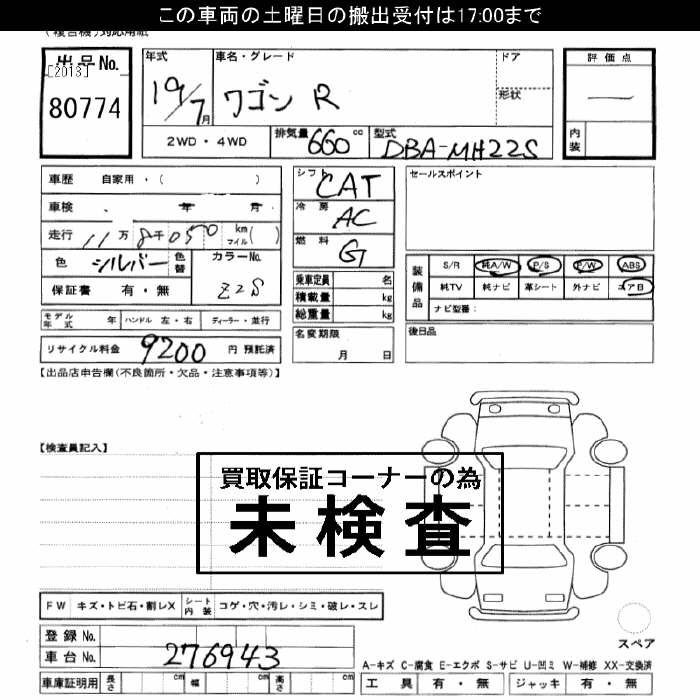 この車両の土曜日の搬出受付は17:00まで
出品No.
[2013]
80774
年式
19/7月
車名・グレード
ワゴン R
ドア
形状
評価点
—
内装
2WD・4WD
排気量 660 cc
型式 DBA-MH22S
車歴 自家用・( )
車検 年 月
走行 11万8千050 km マイル( )
色 シルバー 色替
カラーNo. Z2S
保証書 有・無
シフト CAT
冷房 AC
燃料 G
乗車定員 名
積載量 kg
総重量 kg
名変期限 月 日
セールスポイント
装備品 S/R 純A/W P/S P/W ABS
純TV 純ナビ 革シート 外ナビ エアB
ナビ型番:
後日品
モデル年式 年 ハンドル 左・右 ディーラー・並行
リサイクル料金 9200 円 預託済
【出品店申告欄(不良箇所・欠品・注意事項等)】
【検査員記入】
買取保証コーナーの為
未検査
FW キズ・トビ石・割レX シート内装 コゲ・穴・汚レ・シミ・破レ・スレ
スペア
登録No.
車台No. 276943
A-キズ C-腐食 E-エクボ S-サビ U-凹ミ W-補修 XX-交換済
車庫証明用 長さ cm 幅 cm 高さ cm
工具 有・無 ジャッキ 有・無